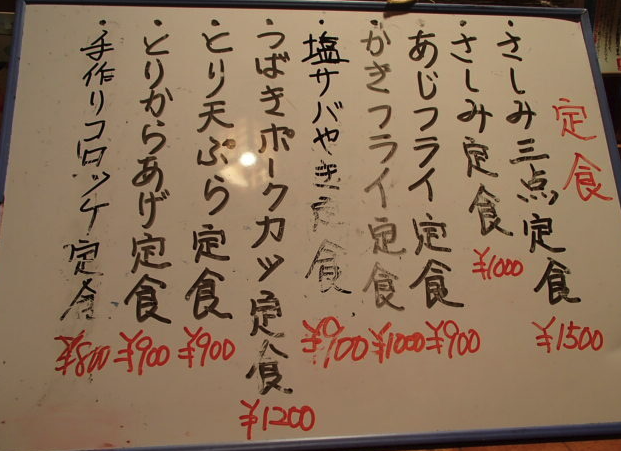 定食
・さしみ三点定食 ¥1500
・さしみ定食 ¥1000
・あじフライ定食 ¥900
・かきフライ定食 ¥1000
・塩サバやき定食 ¥900
・つばきポークカツ定食 ¥1200
・とり天ぷら定食 ¥900
・とりからあげ定食 ¥900
・手作りコロッケ定食 ¥800